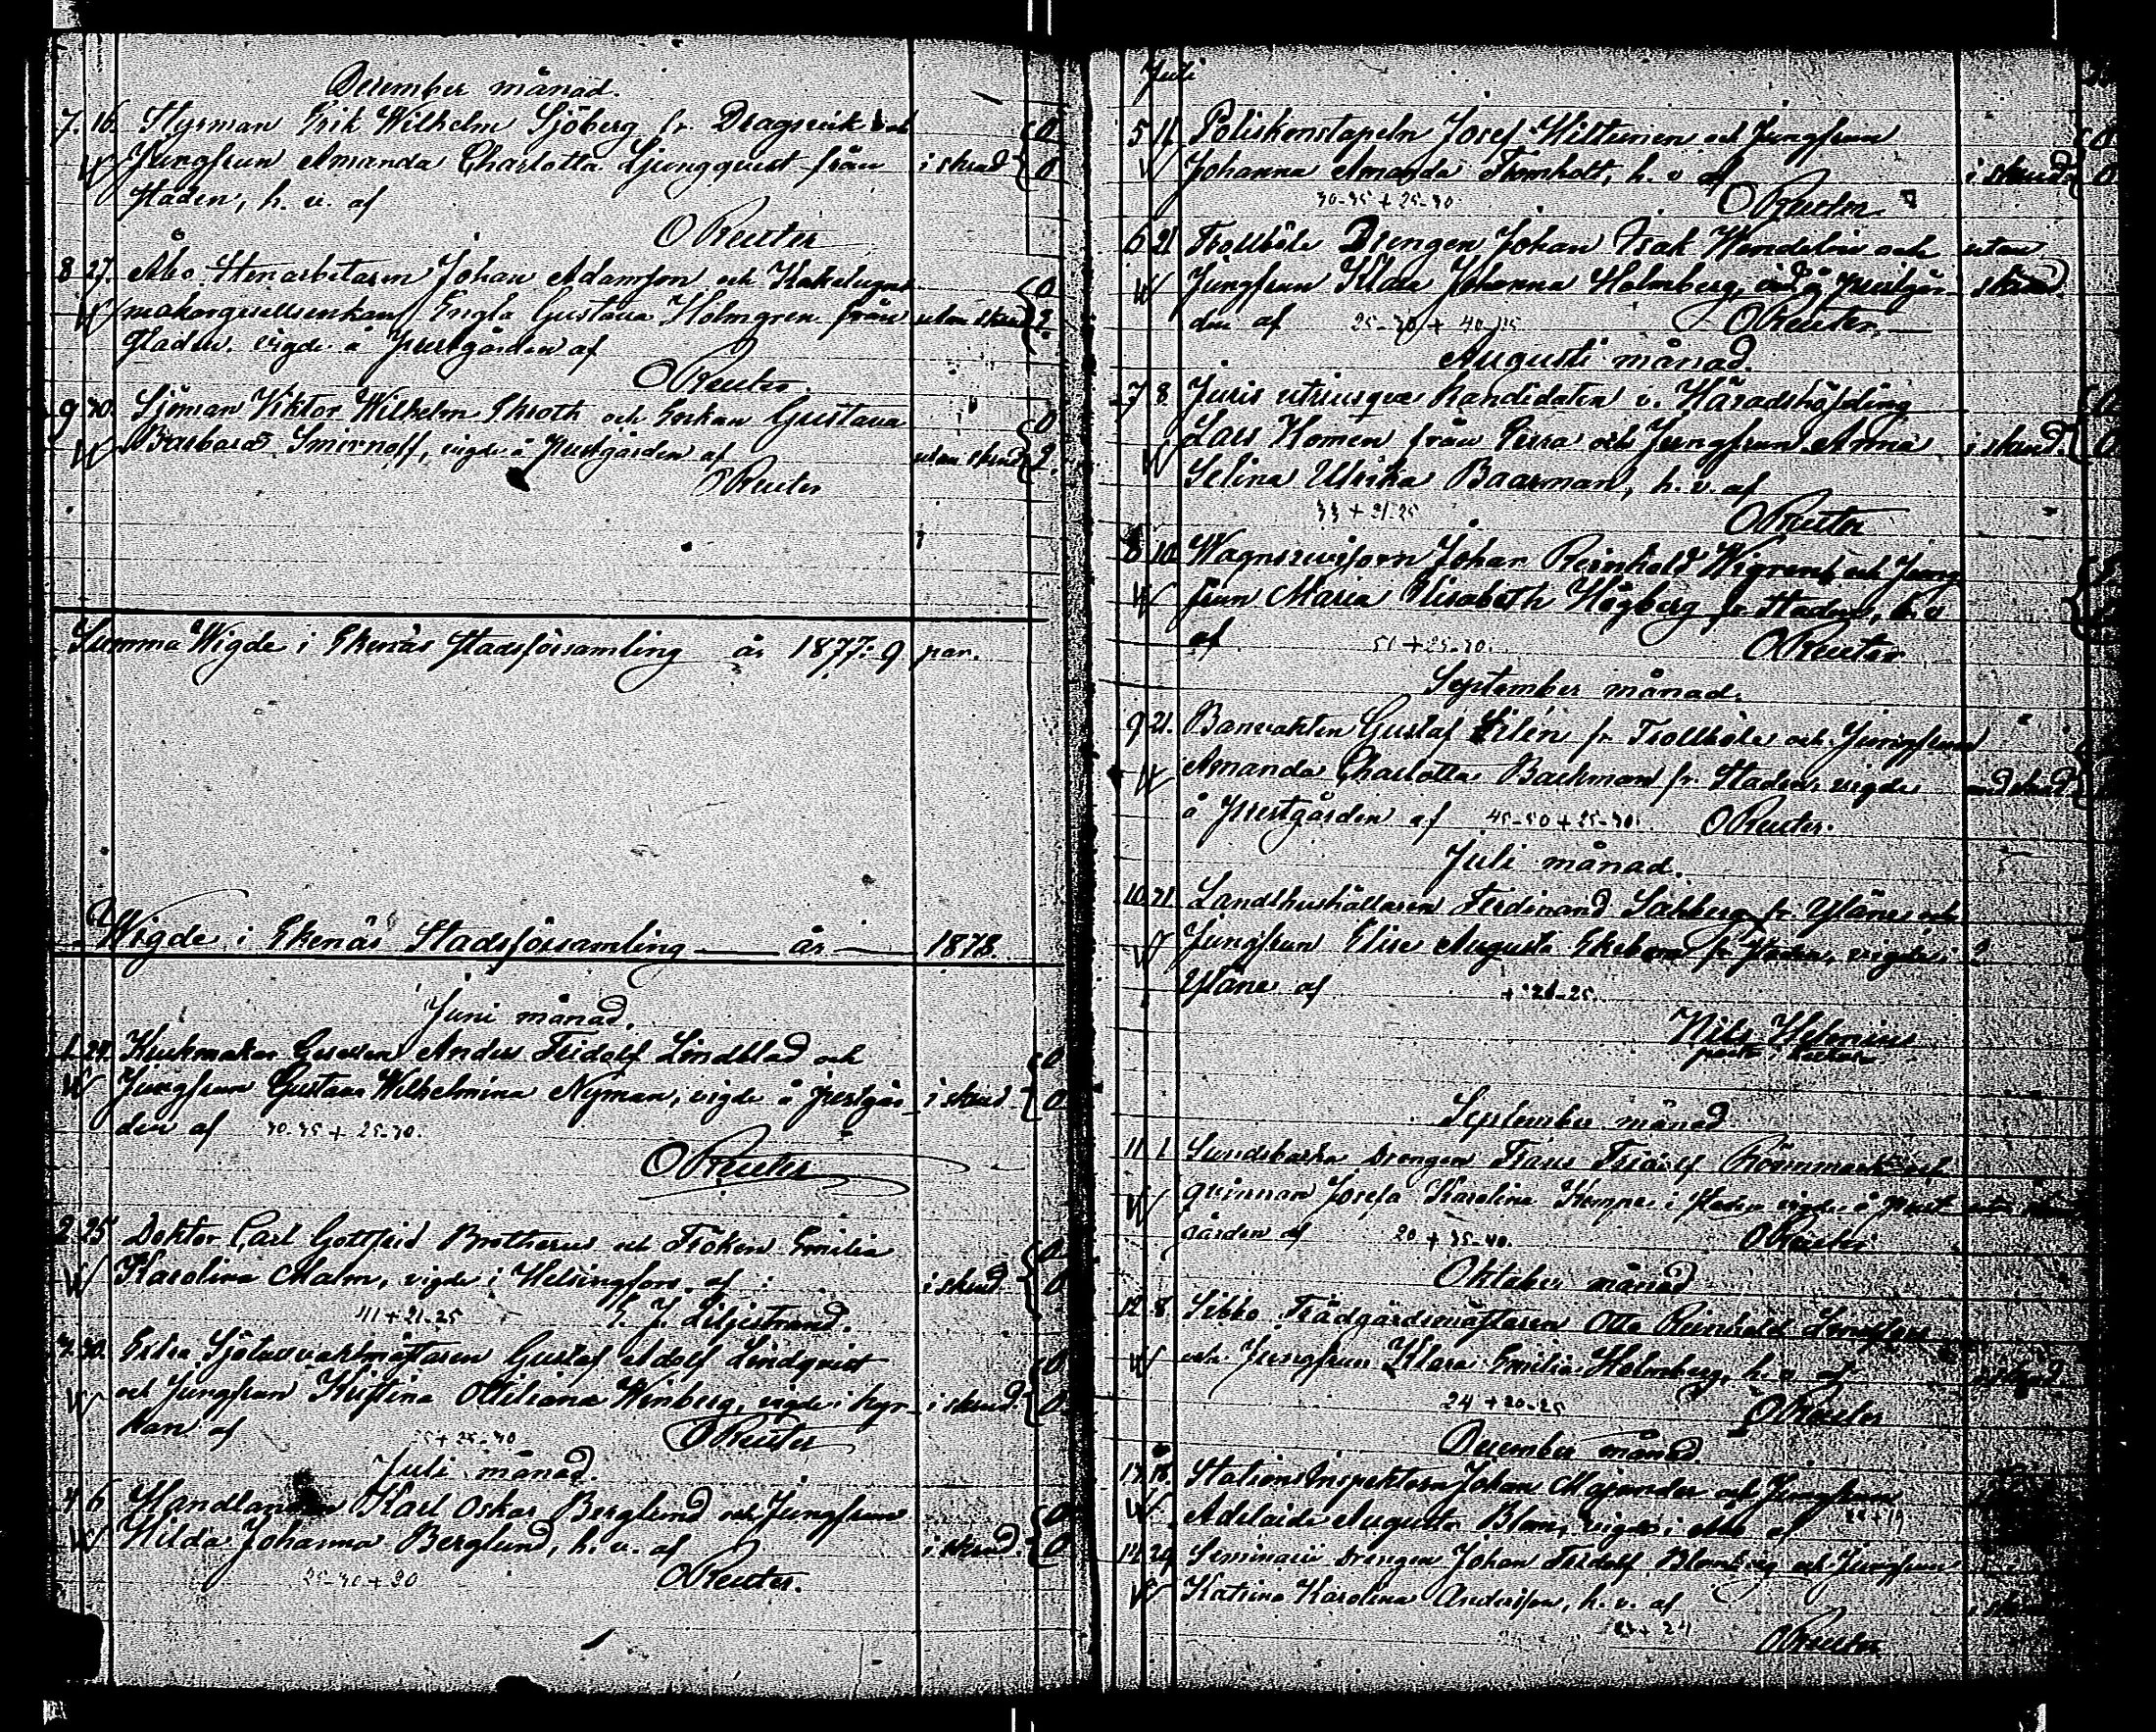 December månad.
7. 16. Styrman Erik Wilhelm Sjöberg fr. Dragsvik och
Jungfrun Amanda Charlotta Ljungqvist från i skrud 0
staden, h. v. af
O Reuter
8 27. Åbo Stenarbetaren Johan Adamsson och Kakelugns 0
makargesellsenkan Engla Gustava Holmgren från utan skrud 2.
staden. vigde å prestgården af
O Reuter.
9 30. Sjöman Viktor Wilhelm Ekroth och Enkan Gustava 0
Barbara Smirnoff, vigde å prestgården af utan skrud 2.
O Reuter
Summa Wigde i Ekenäs stadsförsamling år 1877: 9 par.
Wigde i Ekenäs Stadsförsamling år 1878.
Juni månad.
1. 24. Gesellen Anders Fridolf Lindblad och 0
Jungfrun Gustava Wilhelmina Nyman, vigde å prestgår- i skrud 0
den af 30-35 + 25-30.
O Reuter
2 25 Doktor Carl Gottfrid Brotherus och Fröken Emilia 0
Karolina Malm, vigde i Helsingfors af: i skrud. 0
21-25 Liljestrand.
30. Gustaf Adolf Lindqvist 0
och Jungfrun Kristina Ottiliana Winberg, vigde i kyr- i skrud. 0
kan af 25-30 O Reuter
Juli månad.
4 6. Handlanden Karl Oskar Berglund och Jungfrun 0
Hilda Johanna Berglund, h. v. af i skrud. 0
25-30 + 20 O Reuter.
Juli
5 11. Poliskonstapeln Josef Wiltunen och Jungfrun 0
Johanna Amanda Tromholt, h. v af i skrud 0
30-35 + 25-30. O Reuter.
6 21. Trollböle Drengen Johan Isak Wendelin och utan
Jungfrun Klara Johanna Holmberg, å prestgår- skrud
den af 25-30 + O Reuter.
Augusti månad.
7 8 Juris utriusque kandidaten v. Häradshöfding 0
Lars Homén från och Jungfrun Anna i skrud. 0
Selina Ulrika Baarman, h. v. af
33 + 21-25 O Reuter
8 10. Johan Reinhold och Jung
frun Maria Elisabeth Högberg fr staden, h. v
af 25-30. O Reuter
September månad.
9 21. Banvakten Gustaf fr Trollböle och Jungfrun
Amanda Charlotta Backman fr. staden, vigde
å prestgården af 45-50 + 25-30. O Reuter.
Juli månad.
10 21. Landthushållaren Ferdinand Sahlberg fr Yläne och
Jungfrun Elise Augusta Ekebom fr staden, vigde i
Yläne af + 21-25.
Nils
September månad
11 1 Drengen Frans Fridolf Rönnmark och
qvinnan Josefa Karolina i staden vigde å prest
gården af 20 + 35-40. O Reuter
Oktober månad
12. 8. Sibbo Trädgårdsmästaren Otto Reinhold
och Jungfrun Klara Emilia Holmberg, h. v. af i skrud
24 + 20-25 O Reuter
December månad.
13. Stations Inspektorn Johan Majander och Jungfrun
Adelaide Augusta Blom, vigde i Åbo af
14 29. Seminarii Drengen Johan Fridolf Blomberg och Jungfrun
Katrina Karolina Andersson, h. v. af i skrud
O Reuter